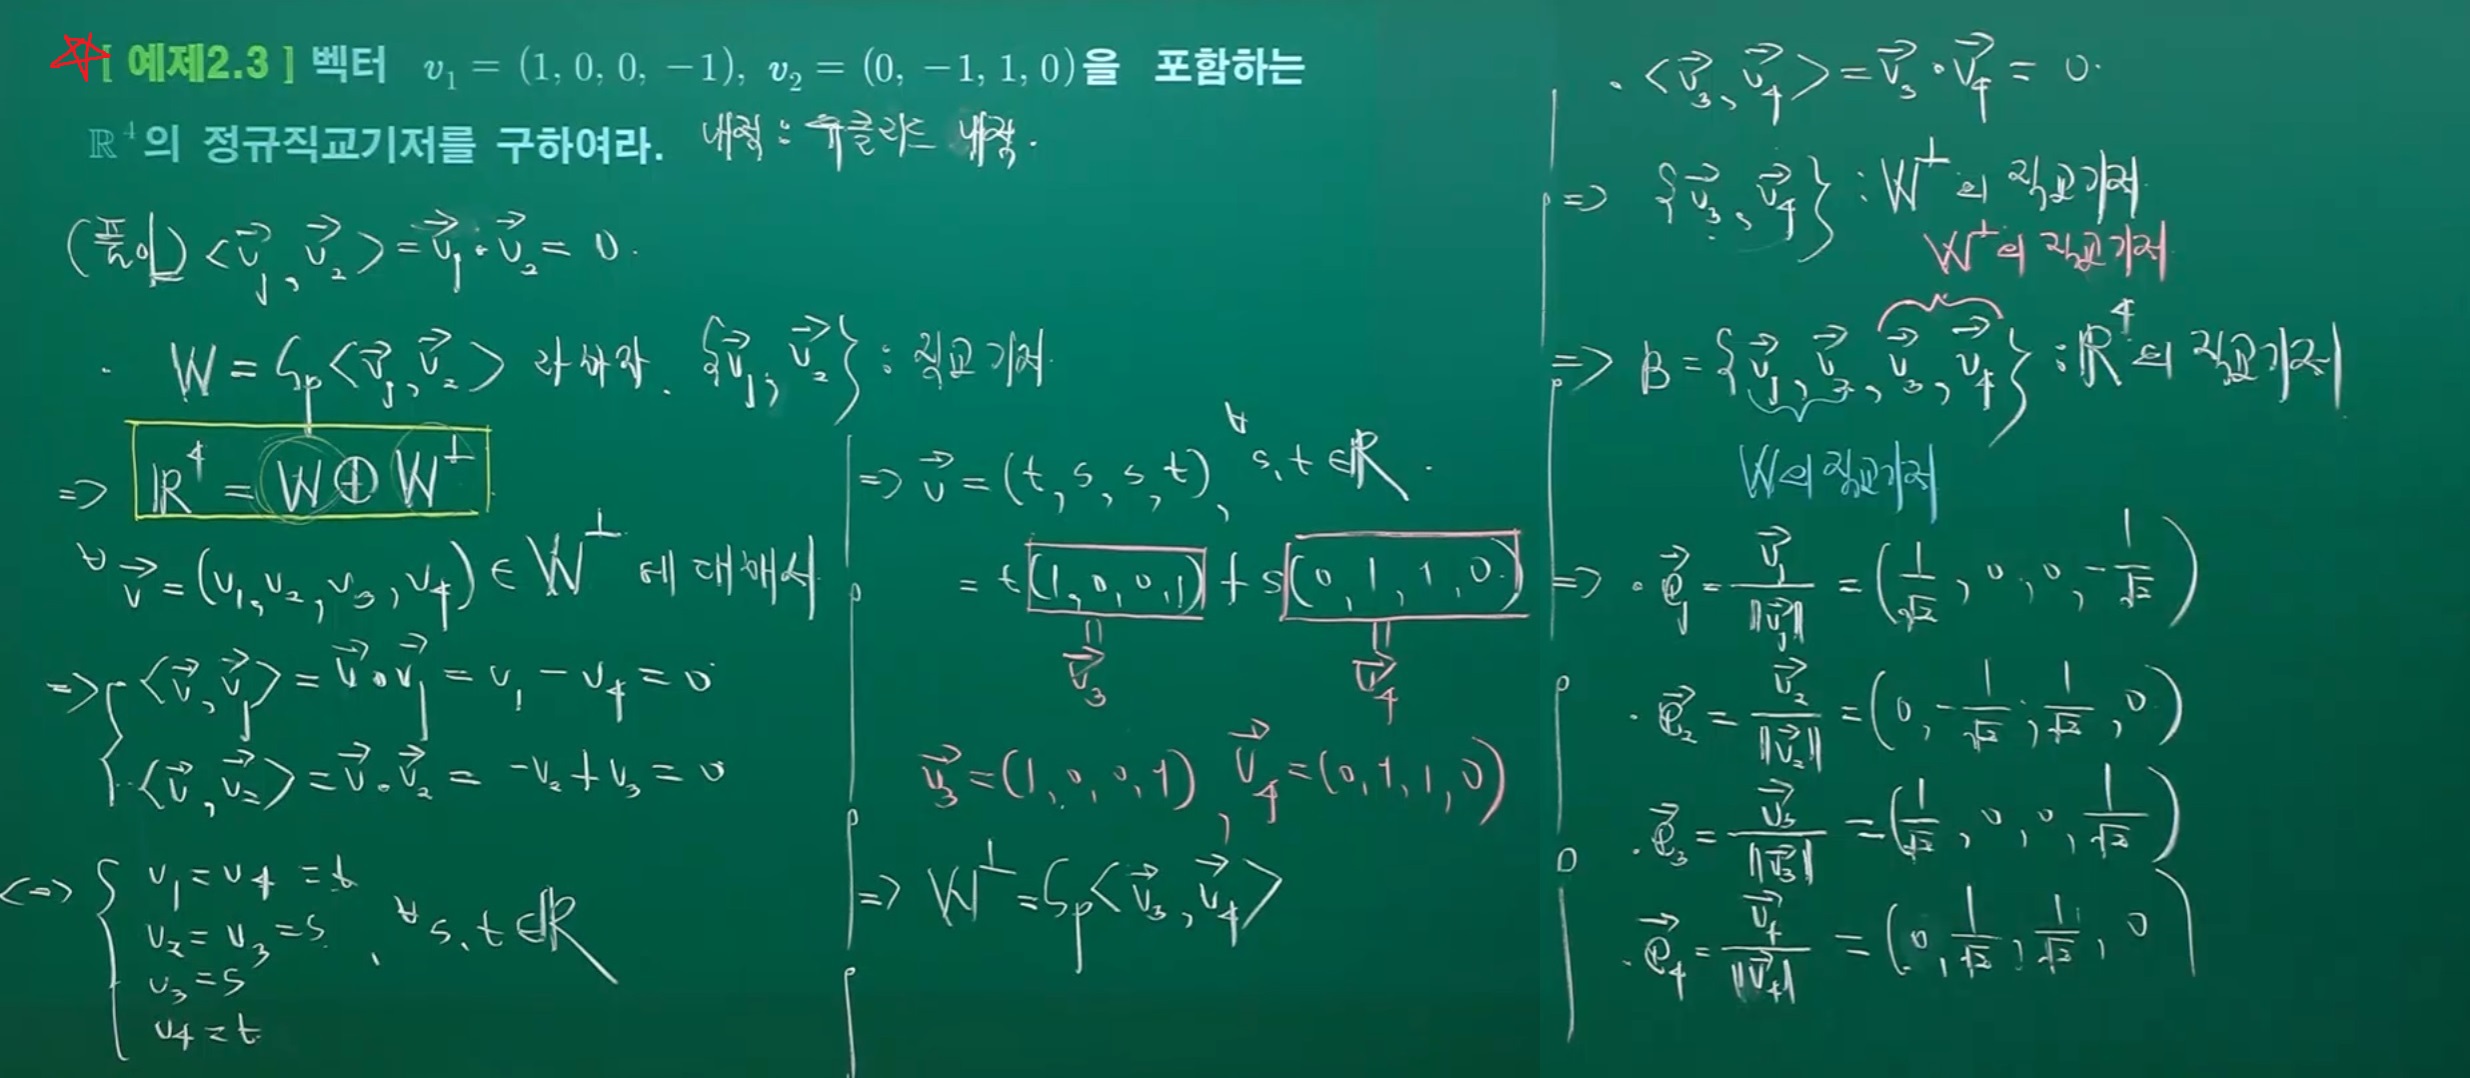 [ 예제2.3 ] 벡터 v₁ = (1, 0, 0, −1), v₂ = (0, −1, 1, 0)을 포함하는
ℝ⁴의 정규직교기저를 구하여라. 내적 : 유클리드 내적.
(풀이) <v⃗₁, v⃗₂> = v⃗₁ · v⃗₂ = 0.
· W = Sp<v⃗₁, v⃗₂> 라 하자. {v⃗₁, v⃗₂} : 직교기저
=> ℝ⁴ = W ⊕ W^⊥
∀v⃗ = (v₁, v₂, v₃, v₄) ∈ W^⊥ 에 대해서
=> { <v⃗, v⃗₁> = v⃗ · v⃗₁ = v₁ − v₄ = 0
<v⃗, v⃗₂> = v⃗ · v⃗₂ = −v₂ + v₃ = 0
<=> { v₁ = v₄ = t
v₂ = v₃ = s , ∀s, t ∈ ℝ
v₃ = s
v₄ = t
=> v⃗ = (t, s, s, t), ∀s, t ∈ ℝ.
= t(1, 0, 0, 1) + s(0, 1, 1, 0)
v⃗₃ v⃗₄
v⃗₃ = (1, 0, 0, 1), v⃗₄ = (0, 1, 1, 0)
=> W^⊥ = Sp<v⃗₃, v⃗₄>
· <v⃗₃, v⃗₄> = v⃗₃ · v⃗₄ = 0.
=> {v⃗₃, v⃗₄} : W^⊥의 직교기저
W^⊥의 직교기저
=> B = {v⃗₁, v⃗₂, v⃗₃, v⃗₄} : ℝ⁴의 직교기저
W의 직교기저
=> · e⃗₁ = v⃗₁/||v⃗₁|| = (1/√2, 0, 0, −1/√2)
· e⃗₂ = v⃗₂/||v⃗₂|| = (0, −1/√2, 1/√2, 0)
· e⃗₃ = v⃗₃/||v⃗₃|| = (1/√2, 0, 0, 1/√2)
· e⃗₄ = v⃗₄/||v⃗₄|| = (0, 1/√2, 1/√2, 0)